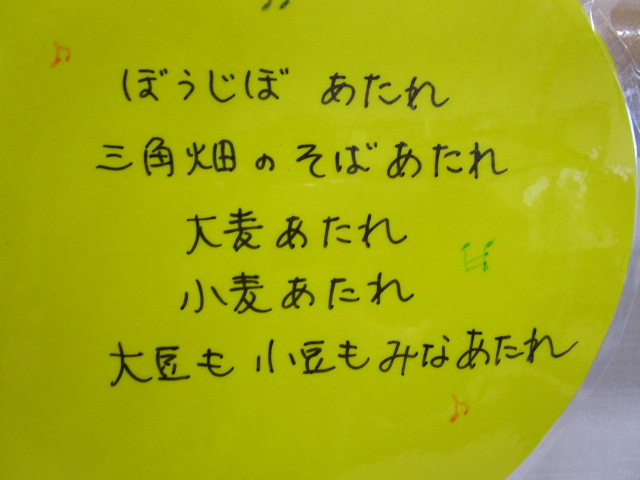 ぼうじぼ あたれ
三角畑のそばあたれ
大麦あたれ
小麦あたれ
大豆も小豆もみなあたれ